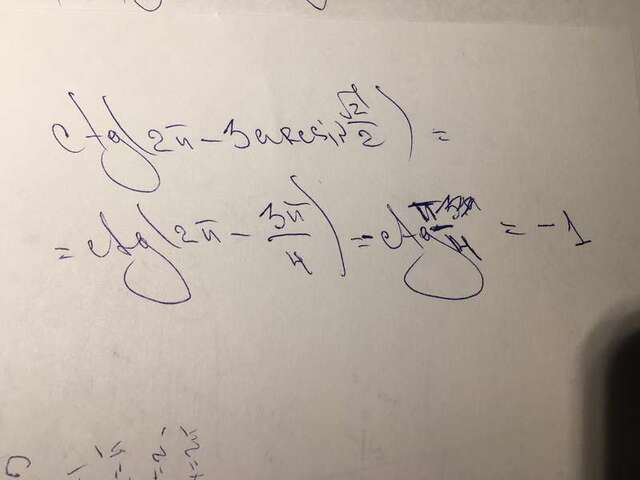 ctg(2π - 3arcsin √2/2) =
= ctg(2π - 3π/4) = ctg = -1